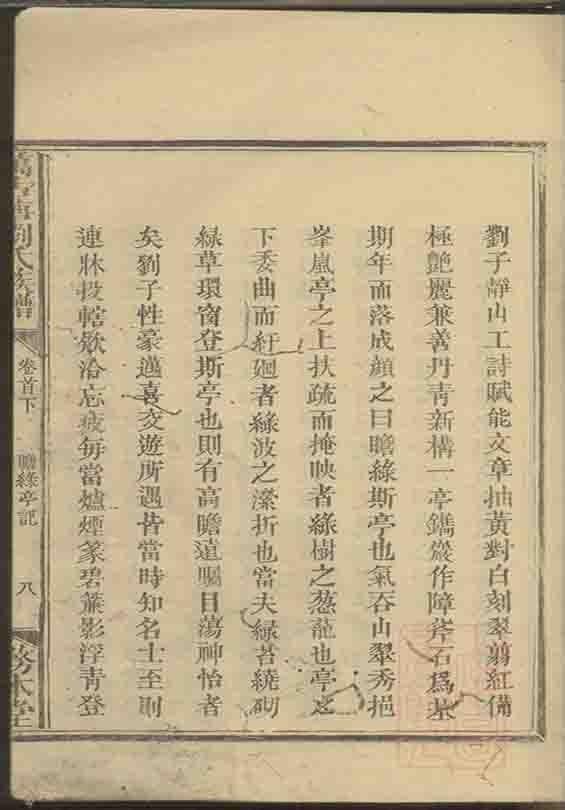 劉子靜山工詩賦能文章抽黃對白刻翠翦紅備
極艷麗兼善丹青新構一亭鐫巖作障斧石爲基
期年而落成顏之曰瞻綠斯亭也氣吞山翠秀挹
峯嵐亭之上扶疏而掩映者綠樹之蔥蘢也亭之
下委曲而紆廻者綠波之瀠折也當夫綠苔繞砌
綠草環窗登斯亭也則有高瞻遠矚目蕩神怡者
矣劉子性豪邁喜交遊所遇皆當時知名士至則
連牀投轄歡洽忘疲每當爐煙篆碧簾影浮青登
劉氏族譜
卷首下
瞻綠亭記
八
敦本堂